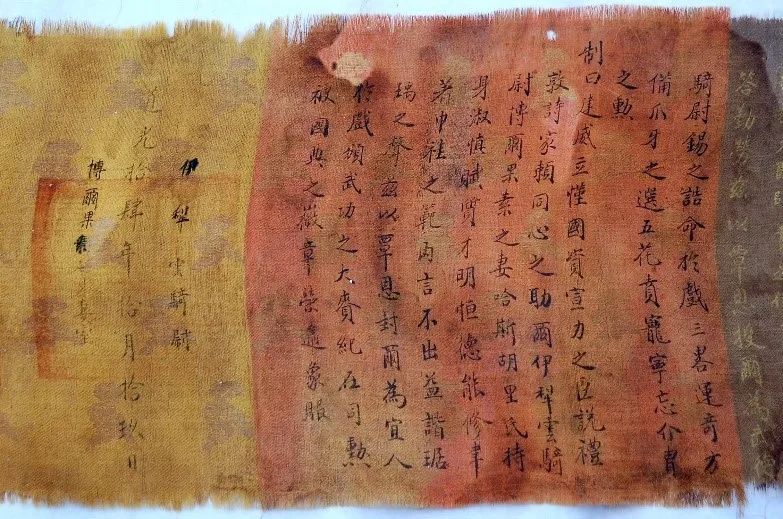 授爾為武
騎尉錫之誥命於戲三畧運奇方
備爪牙之選五花賁寵寧忘介冑
之勲
制曰建威立懂國資宣力之臣說禮
敦詩家賴同心之助爾伊犁雲騎
尉博爾果素之妻哈斯胡里氏持
身淑慎賦質才明恒德能修聿
著巾帨之範內言不出益諧琚
瑀之聲茲以覃恩封爾為宜人
於戲頌武功之大賚紀在司勲
被國典之徽章榮逾象服
伊犁雲騎尉
道光拾肆年拾月拾玖日
博爾果素